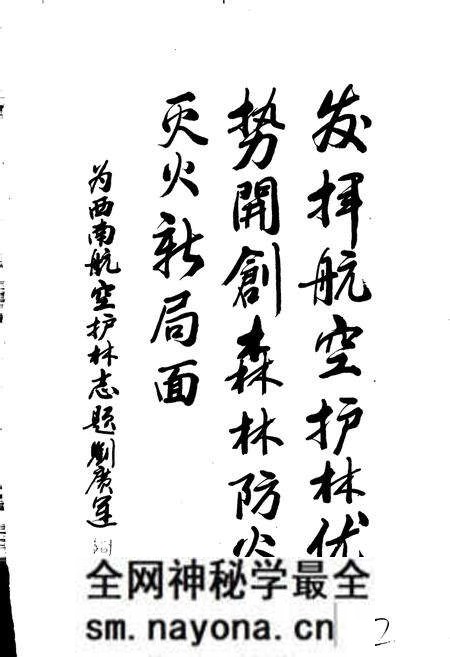 发挥航空护林优
势開創森林防火
灭火新局面
为西南航空护林志题 劉廣运
全网神秘学最全
sm.nayona.cn
2